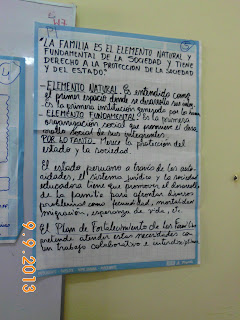 "LA FAMILIA ES EL ELEMENTO NATURAL Y
FUNDAMENTAL DE LA SOCIEDAD Y TIENE
DERECHO A LA PROTECCIÓN DE LA SOCIEDAD
Y DEL ESTADO"
- ELEMENTO NATURAL: Es entendido como
el primer espacio donde se desarrolla
Es la primera institución generada por
- ELEMENTO FUNDAMENTAL: Es la primera
organización social que promueve el desa-
rrollo social de sus integrantes.
POR LO TANTO: Merece la protección del
estado y la sociedad.
El estado peruano a través de las auto-
ridades, el sistema jurídico y la sociedad
educadora tiene que promover el desarrollo
de la familia para afrontar diversos
problemas como fecundidad, mortalidad
migración, esperanza de vida, etc.
El Plan de Fortalecimiento de las Familias
pretende atender estas necesidades con
un trabajo colaborativo e interdisciplinario
9.9.2013